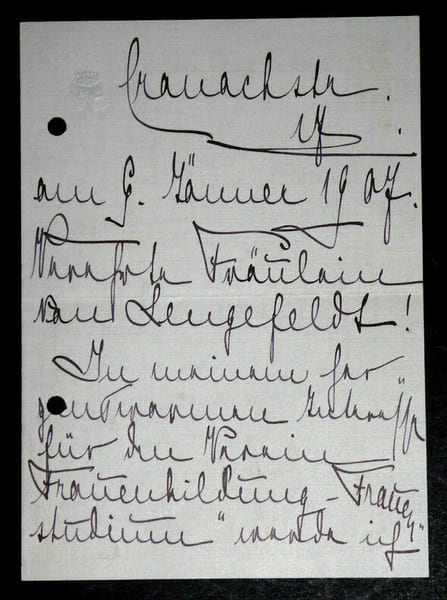 Cranachstr.
17.
am 9. Jänner 1907.
Verehrte Fräulein
von Lengefeldt!
In meinem
Interesse
für den Verein
Frauenbildung – Frauen
studium" werde ich